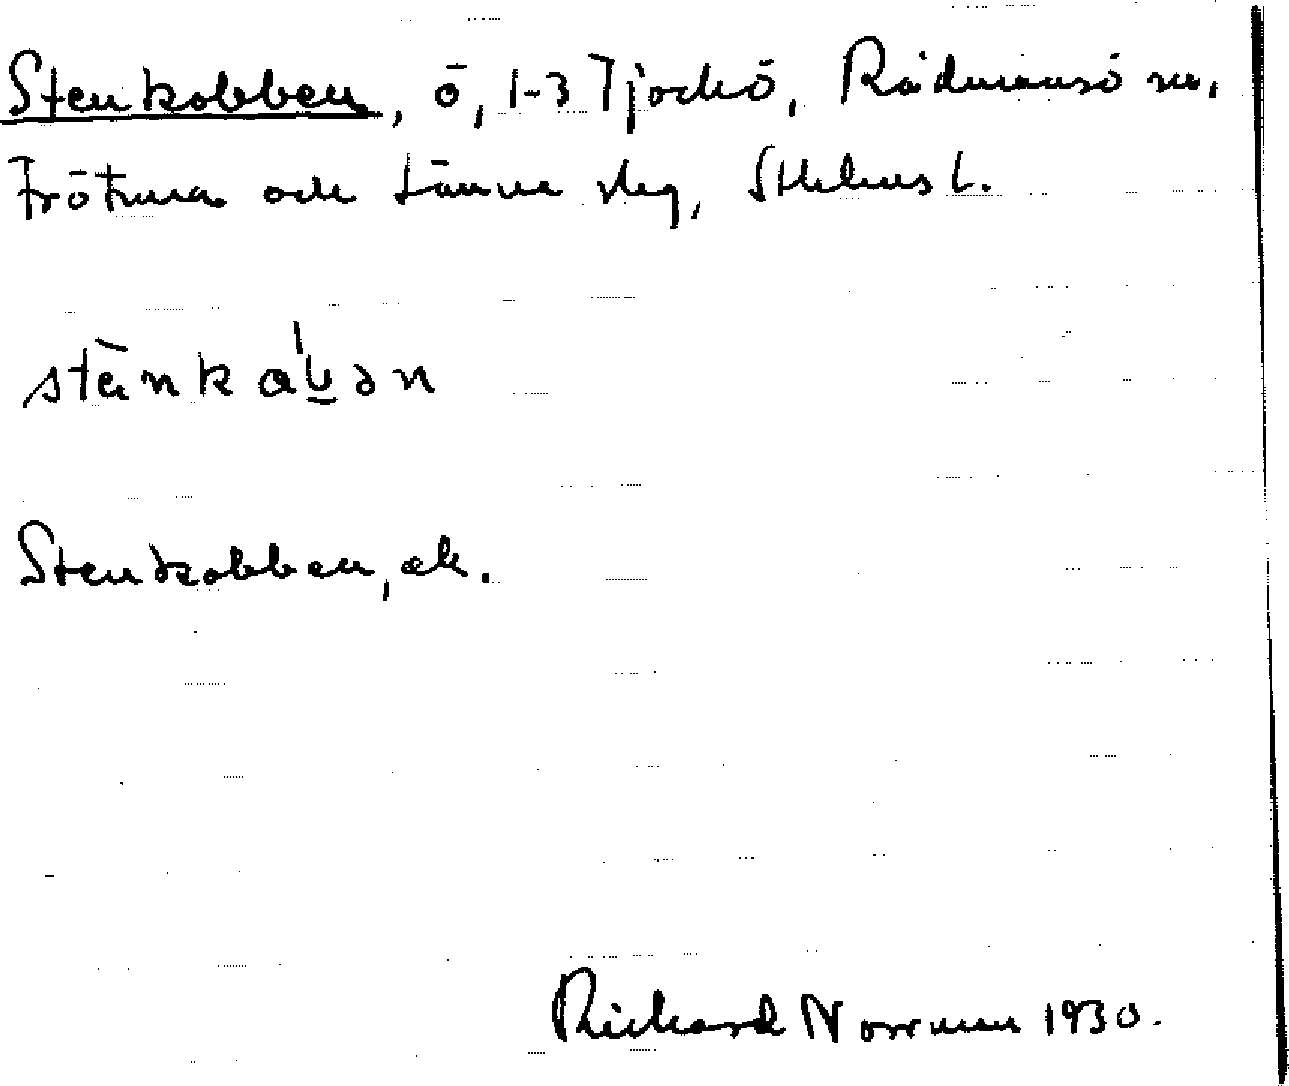 Stenkobben, ö, 1-3 Tjockö, Rådmansö sn,
Frötuna och Länna skg, Sthlms l.
Stenkobben, ek.
Richard Norrman 1930.